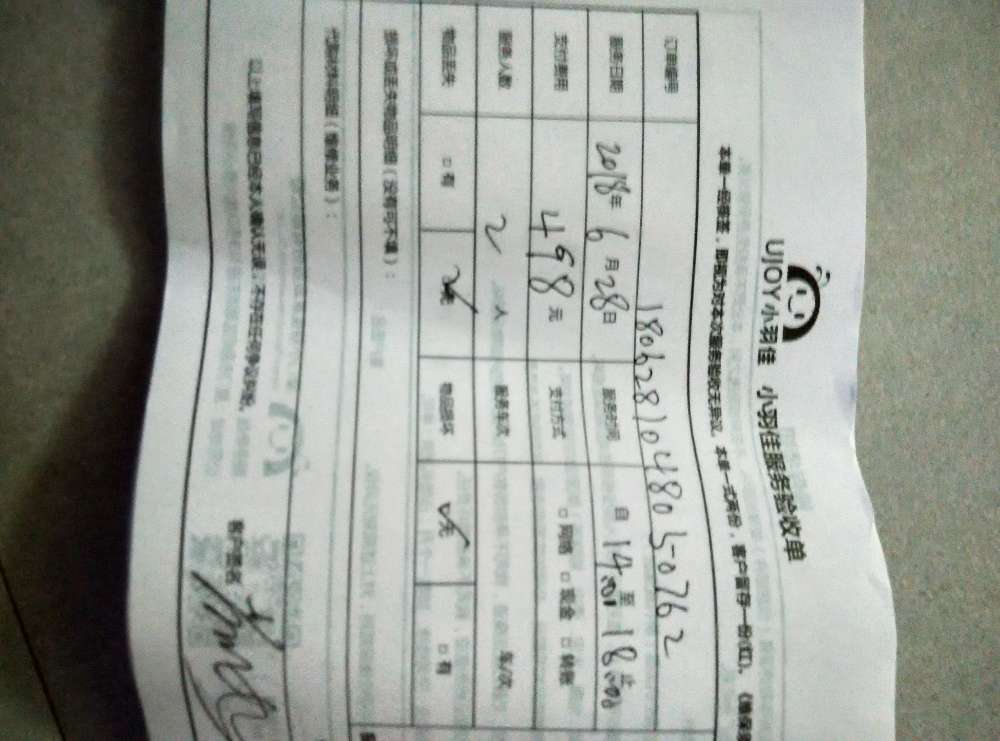 UJOY小羽佳 小羽佳服务验收单
本单一经签署，即视为对本次服务验收无异议。本单一式两份，客户留存一份
订单编号 180628104803-0762
服务日期 2018年6月28日 服务时间 自14:00至18:00
支付费用 498元 支付方式 □网络 □现金 □转账
服务人数 2人 服务车次 车/次
物品丢失 □有 无 物品损坏 无 □有
损坏或丢失物品明细（没有可不填）：
代购材料明细（维修业务）：
以上填写信息已经本人确认无误，不存在任何争议纠纷。
客户签名